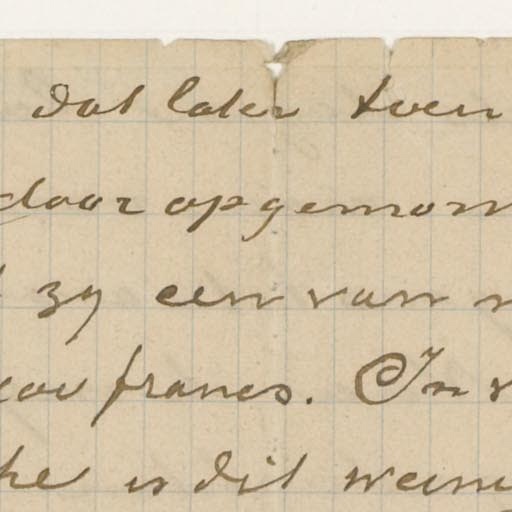 dat later toen
daar opgenom
zy een van
francs. In
is dit weini